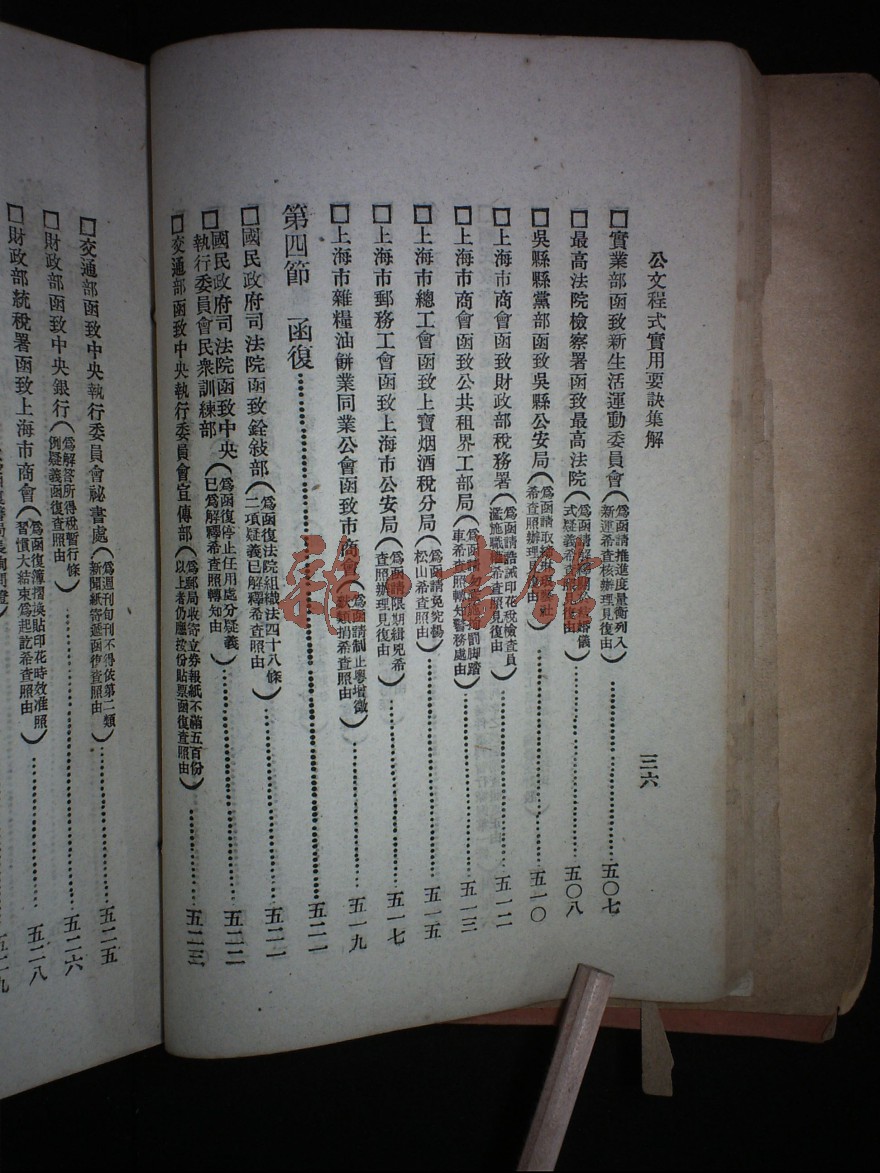 公文程式實用要訣集解
三六
□實業部函致新生活運動委員會(爲函請推進度量衡列入新運希查核辦理見復由)……五〇七
□最高法院檢察署函致最高法院(爲函請解釋婚儀式疑義希查照見復由)……五〇八
□吳縣縣黨部函致吳縣公安局(爲函請取締社希查照辦理見復由)……五一〇
□上海市商會函致財政部稅務署(爲函請誥誡印花稅檢查員濫施職權希查照見復由)……五一二
□上海市商會函致公共租界工部局(爲函請勿罰脚踏車希查照轉知警務處由)……五一三
□上海市總工會函致上寶烟酒稅分局(爲函請免究楊松山希查照由)……五一五
□上海市郵務工會函致上海市公安局(爲函請限期緝兇希查照辦理見復由)……五一七
□上海市雜糧油餅業同業公會函致市商會(爲函請制止粵增徵類捐希查照由)……五一九
第四節 函復……五二一
□國民政府司法院函致銓敍部(爲函復法院組織法四十八條二項疑義已解釋希查照由)……五二一
□國民政府司法院函致中央執行委員會民衆訓練部(爲函復停止任用處分疑義已爲解釋希查照轉知由)……五二二
□交通部函致中央執行委員會宣傳部(爲郵局收寄立券報紙不滿五百份以上者仍應按份貼票函復查照由)……五二三
□交通部函致中央執行委員會祕書處(爲週刊旬刊不得依第二類新聞紙寄遞函復查照由)……五二五
□財政部函致中央銀行(爲解答所得稅暫行條例疑義函復查照由)……五二六
□財政部統稅署函致上海市商會(爲函復簿摺換貼印花時效准照習慣大結束爲起訖希查照由)……五二八
五二九
龍書館